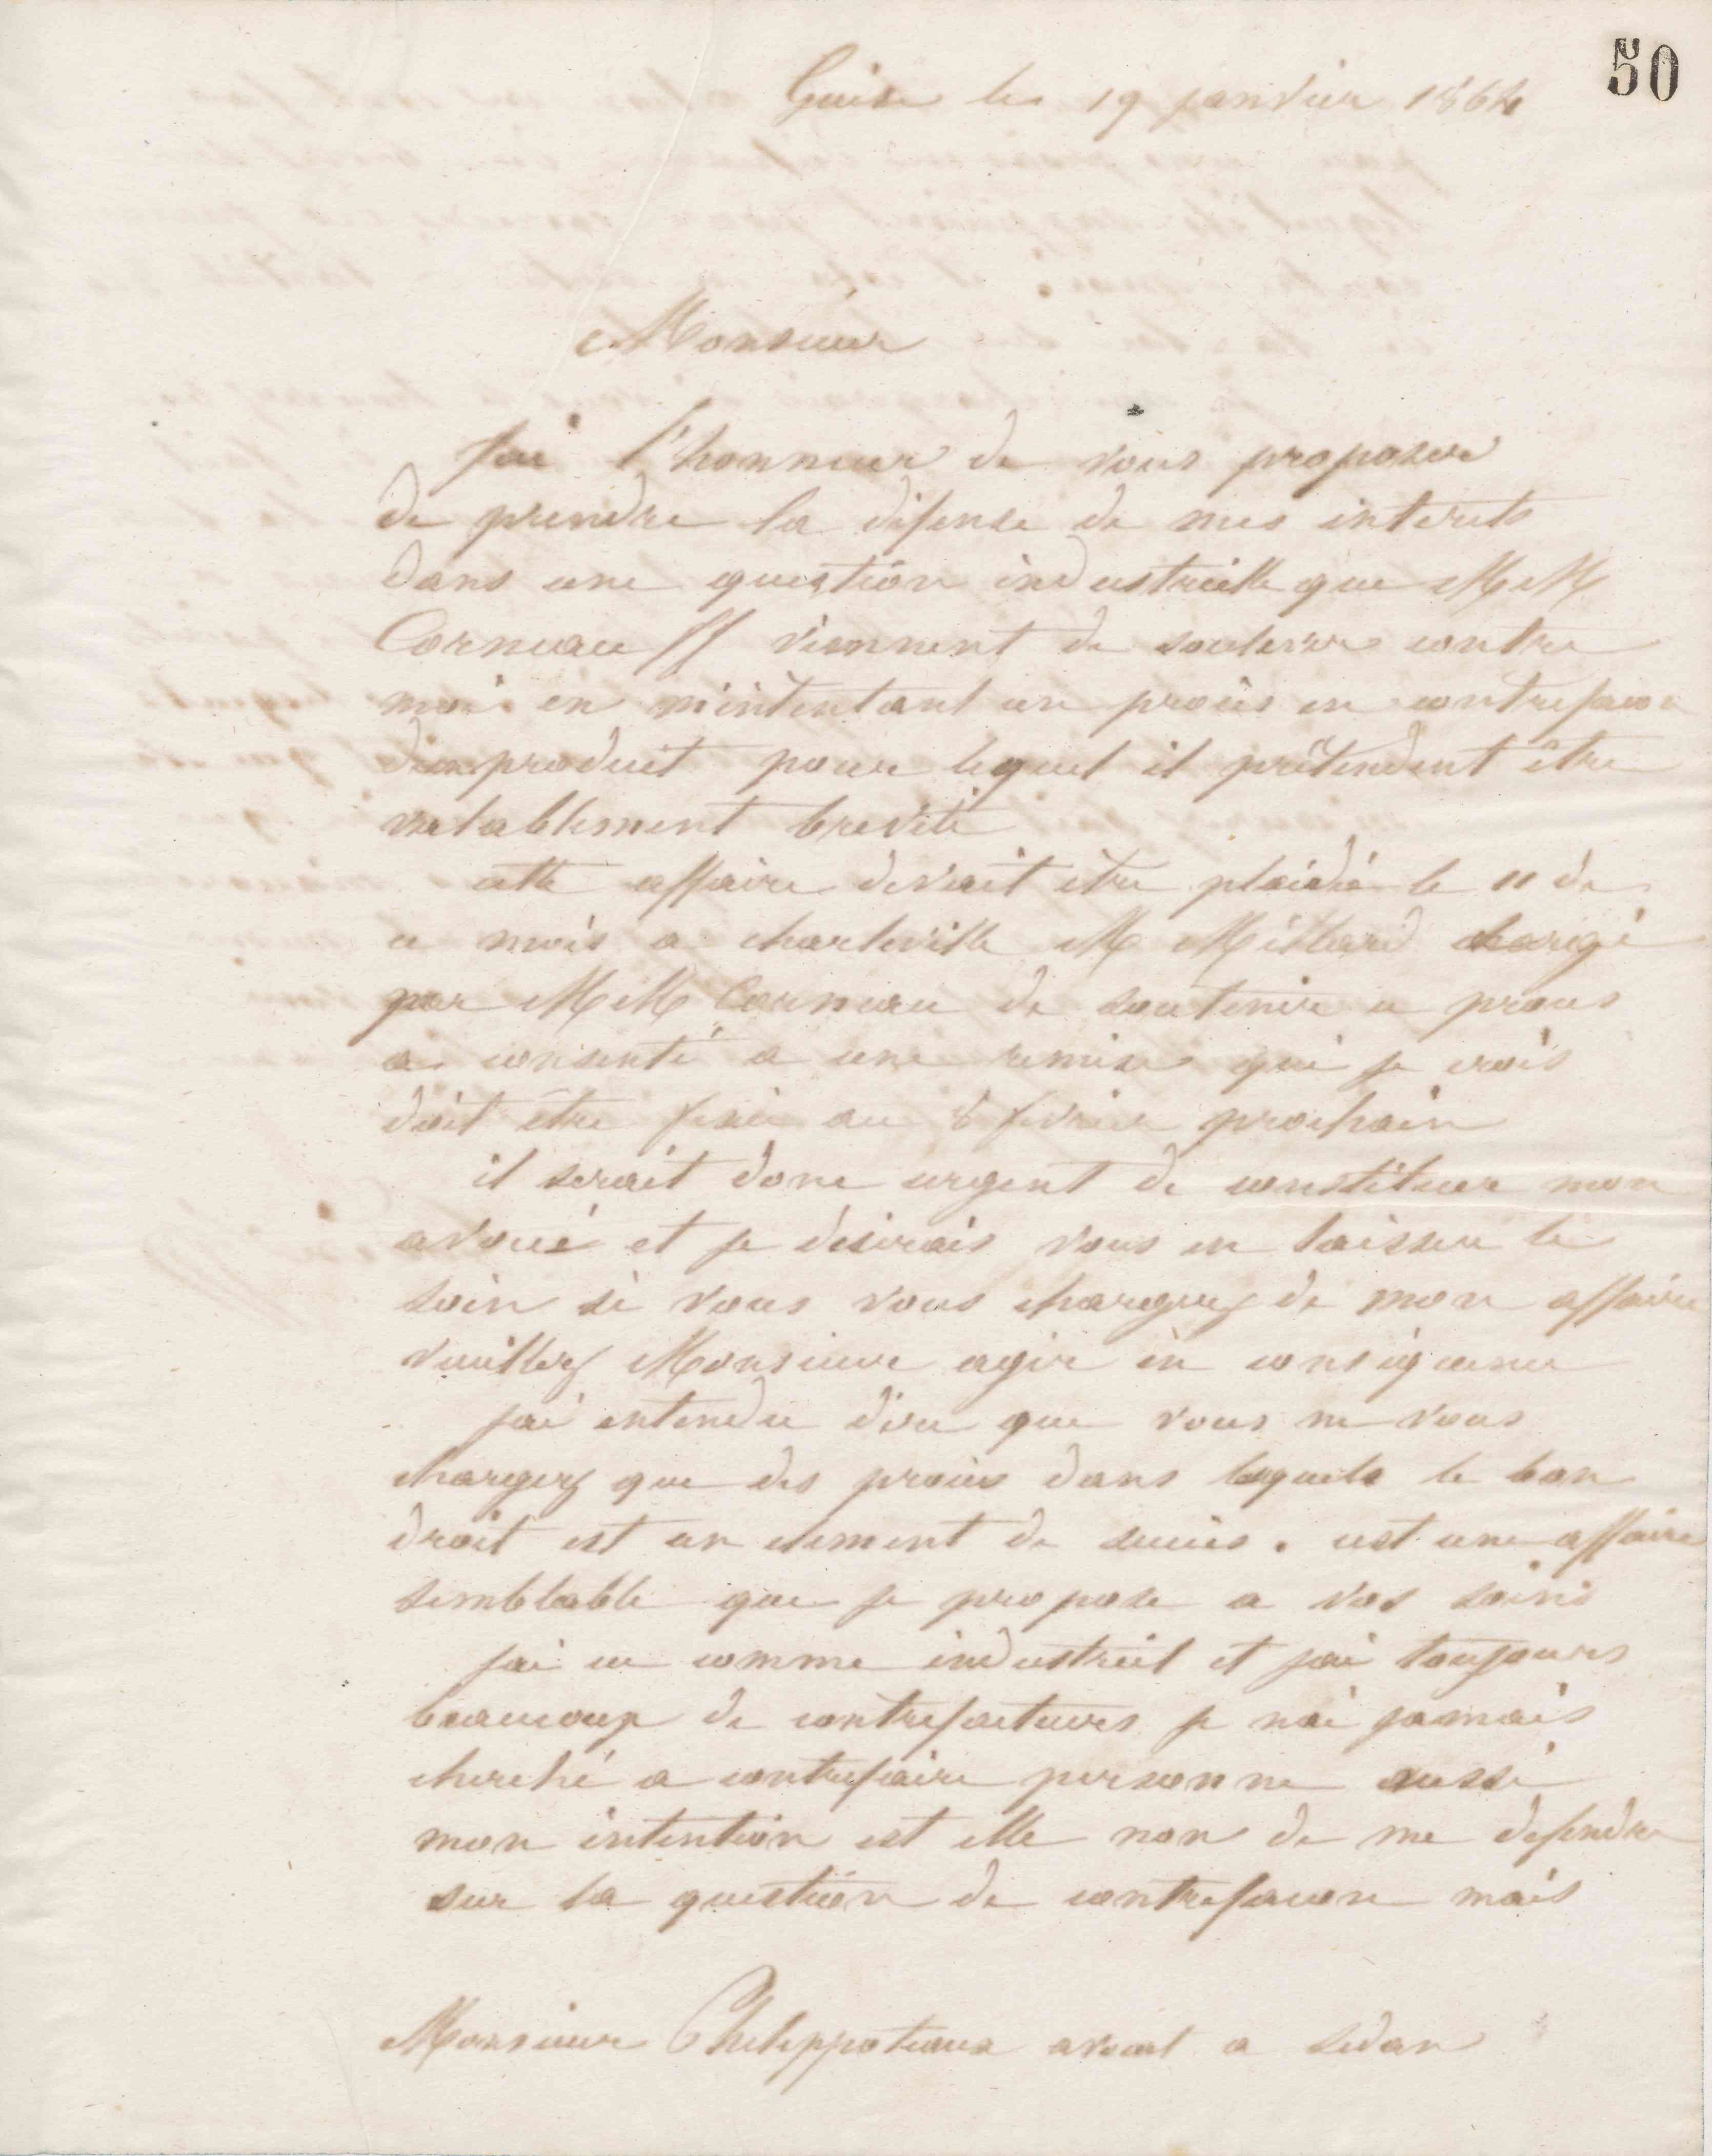 50
Guise le 19 janvier 1864
Monsieur
J'ai l'honneur de vous proposer
de prendre la défense de mes interets
dans une question industrielle que MM
Corneau ff viennent de soulever contre
moi en m'intentant un procès en contrefacon
d'un produit pour lequel il prétendent être
valablement breveté
cette affaire devait être plaidé le 11 de
ce mois a charleville M Millard chargé
par MM Corneau de soutenir ce proces
a consenti a une remise qui je crois
doit être fixée au 8 février prochain
il serait donc urgent de constituer mon
avoué et je désirais vous en laisser le
soin si vous vous chargez de mon affaire
veuillez Monsieur agir en conséquence
j'ai entendu dire que vous ne vous
chargez que des procès dans lesquels le bon
droit est un element de succès. cest une affaire
semblable que je propose a vos soins
j'ai eu comme industriel et j'ai toujours
beaucoup de contrefacteurs je n'ai jamais
cherché a contrefaire personne aussi
mon intention est elle non de me defendre
sur la question de contrefacon mais
Monsieur Philippoteaux avocat a Sedan